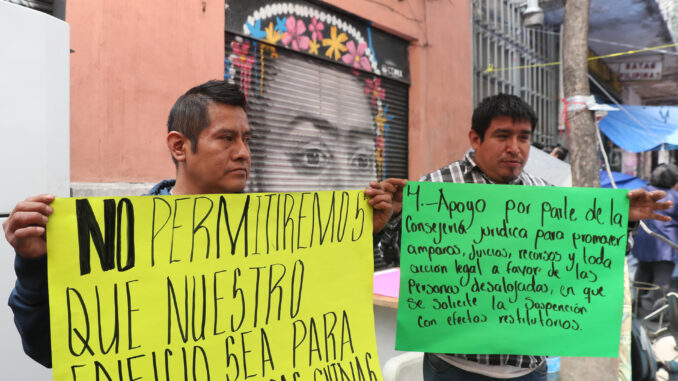 NO PERMITIREMOS
QUE NUESTRO
EDIFICIO SEA PARA
CHINAS
4.- Apoyo por parte de la
Consejería jurídica para promover
amparos, juicios, recursos y toda
acción legal a favor de las
Personas desalojadas, en que
se solicite la Suspensión
con efectos restitutorios.
BATAS
FILIPINA
CDMX